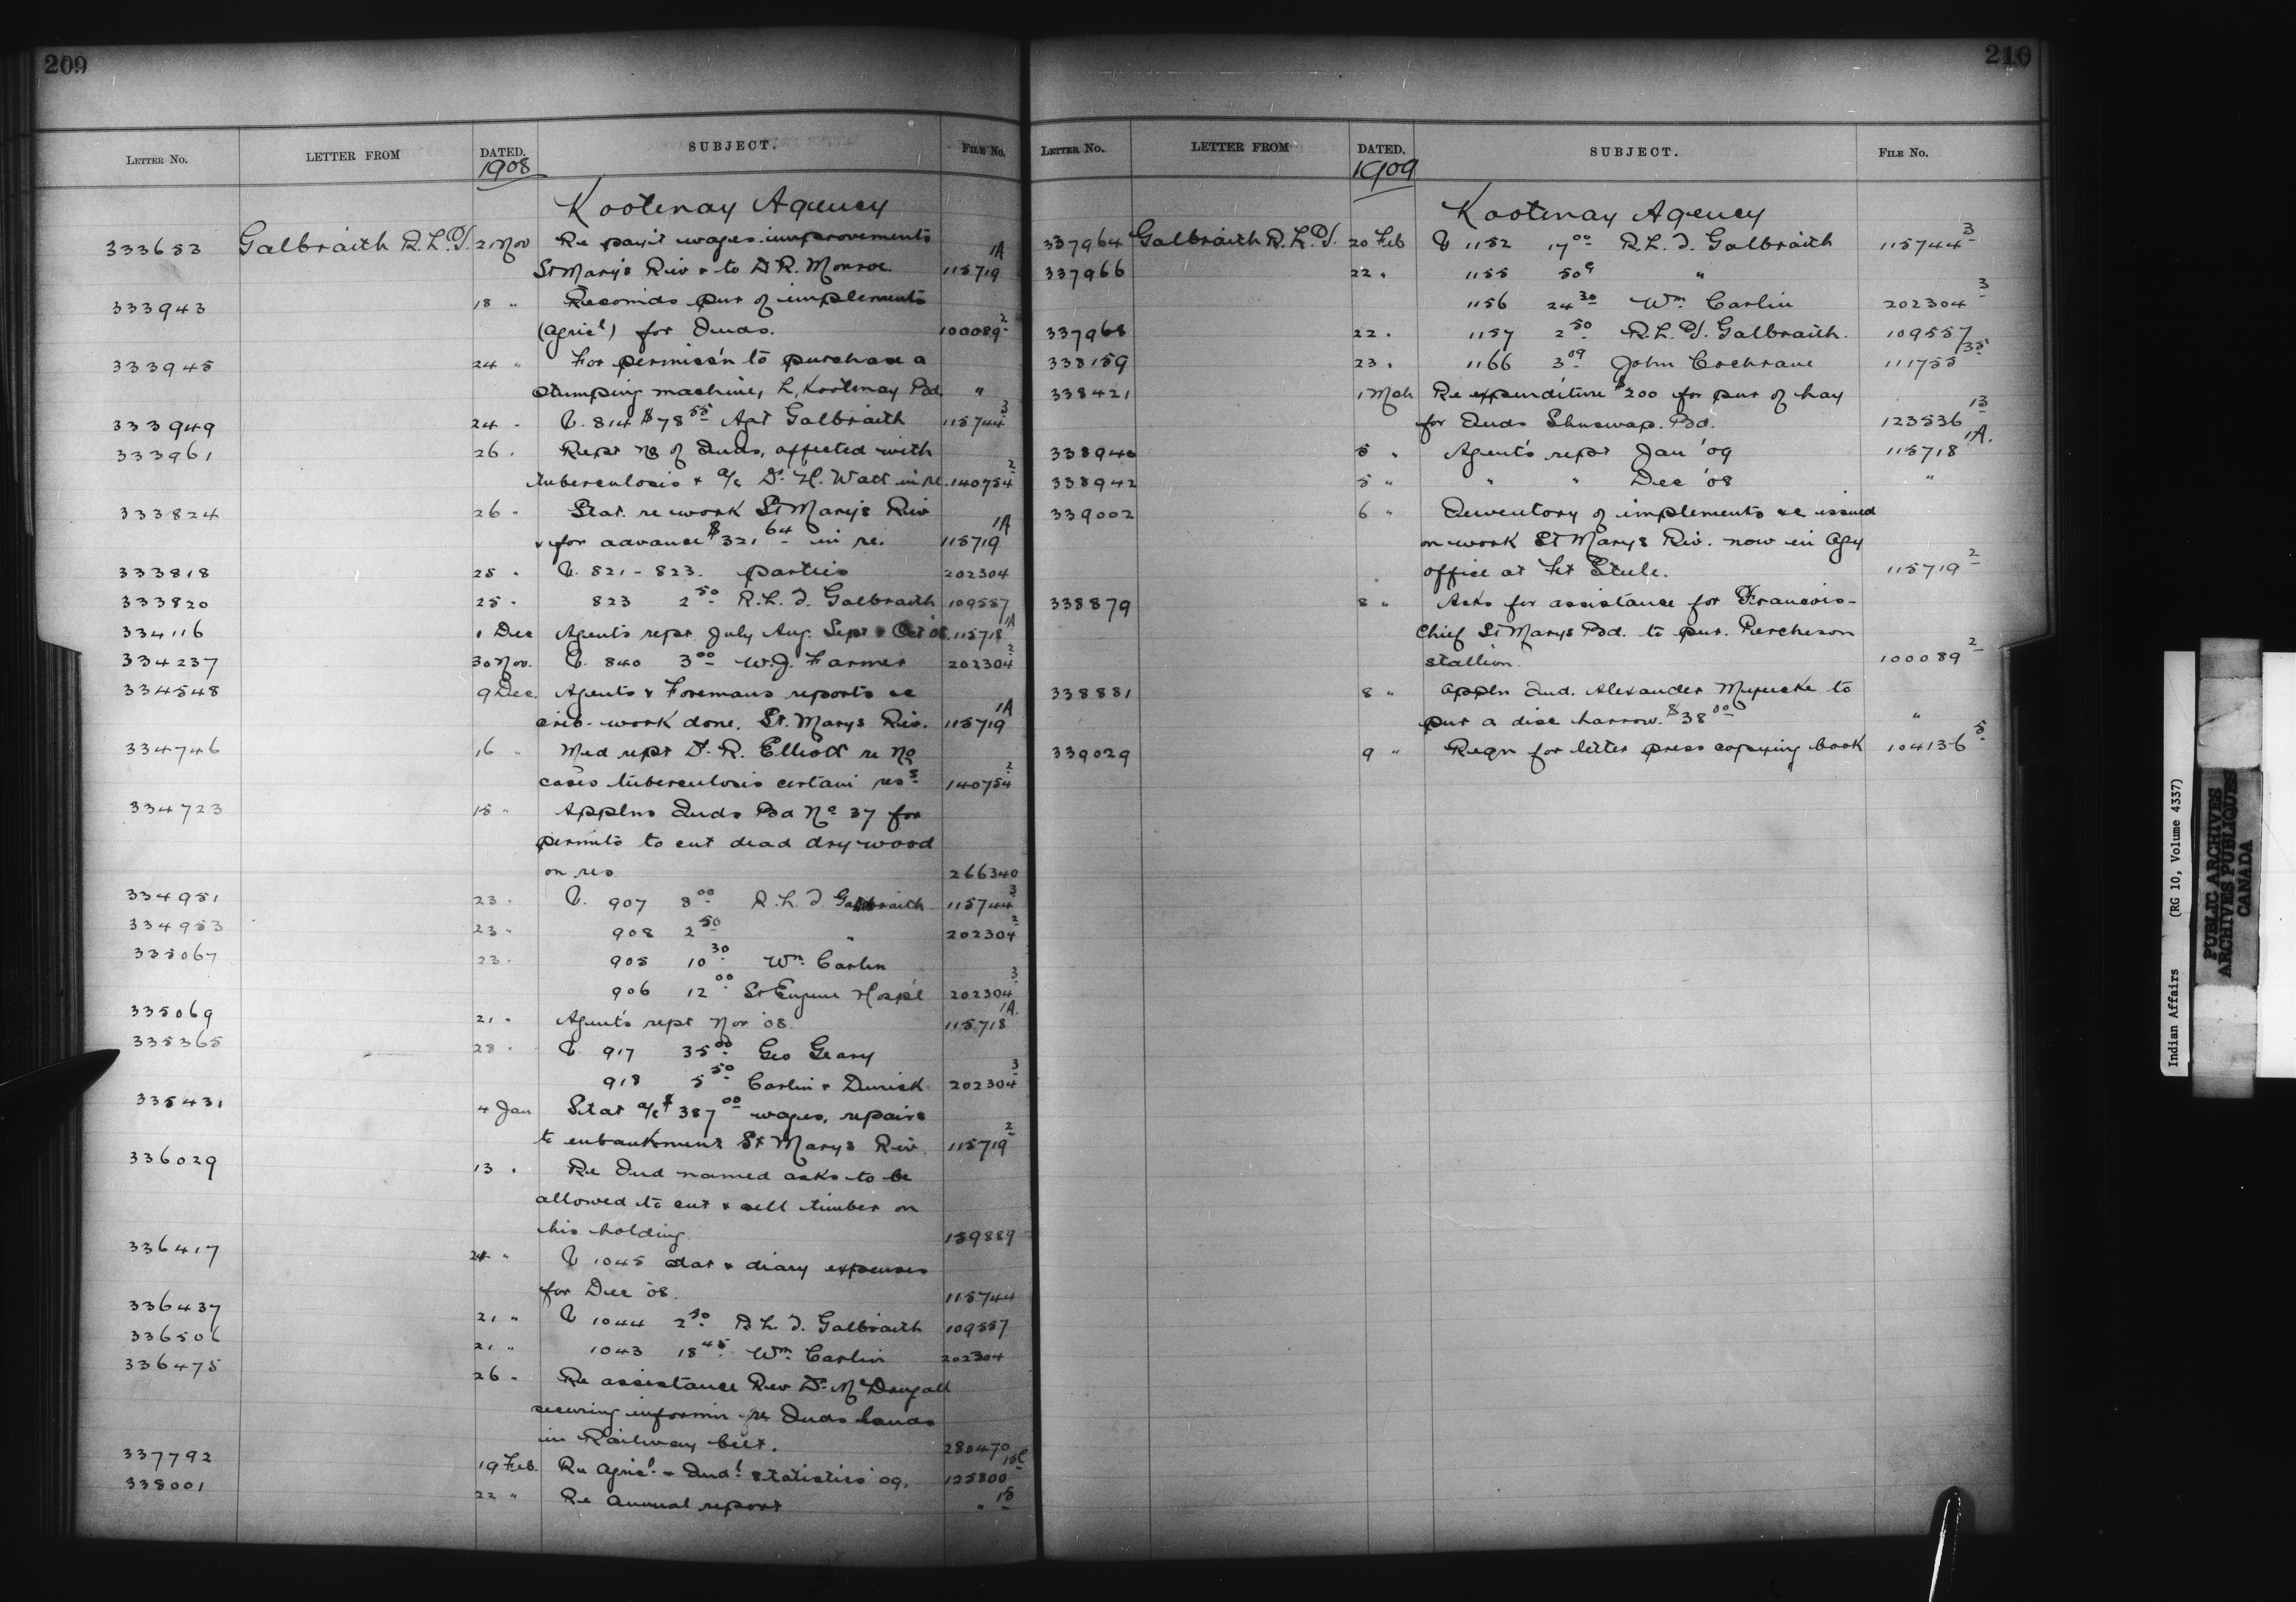 209
LETTER NO. LETTER FROM DATED. SUBJECT. FILE No.
1908
Kootenay Agency
333653 Galbraith R.L.T. 21 Nov Re pay't wages improvements
St Mary's Riv & to D.R. Monroe. 115719 1A
333943 18 " Recomds pur of implements
(agricl) for Inds. 100089 2
333945 24 " For permiss'n to purchase a
stumping machine, L. Kootenay Bd. "
333949 24 " V. 814 $78 55 Agt Galbraith 115744 3
333961 26 " Rept No of Inds, affected with
tuberculosis & a/c Dr H. Watt in re. 140754 2
333824 26 " Stat. re work St Mary's Riv
& for advance $321 64 in re. 115719 1A
333818 25 " V. 821 - 823. parties 202304
333820 25 " 823 2 50 R.L.T. Galbraith 109557
334116 1 Dec Agents rept July Aug. Sept & Oct '08. 115718 1A
334237 30 Nov. V. 840 3 00 W.J. Farmer 202304 2
334548 9 Dec. Agents & Foremans reports re
crib-work done. St. Marys Riv. 115719 1A
334746 16 " Med rept Dr. R. Elliott re No
cases tuberculosis certain res s 140754 2
334723 15 " Applns Inds Bd No 37 for
permits to cut dead dry wood
on res 266340
334951 23 " V. 907 8 00 R.L.T. Galbraith 115744 3
334953 23 " 908 2 50 " 202304 2
335067 23 " 905 10 30 Wm. Carlin
906 12 00 St Eugene Hosp'l 202304 3
335069 21 " Agent's rept Nov '08. 115718 1A.
335365 28 " V. 917 35 00 Geo Geary
918 5 50 Carlin & Durick 202304 3
335431 4 Jan Stat a/c $387 00 wages, repairs
to embankment St Marys Riv. 115719 2
336029 13 " Re Ind named asks to be
allowed to cut & sell timber on
his holding. 159889
336417 21 " V 1045 stat & diary expenses
for Dec '08. 115744
336437 21 " V 1044 2 50 R.L.T. Galbraith 109557
336506 21 " 1043 18 45 Wm. Carlin 202304
336475 26 " Re assistance Rev Dr. McDougall
securing informn re Inds lands
in Railway belt. 280470
337792 19 Feb. Re Agricl. & Indl statistics '09. 125800
338001 22 " Re Annual report "
210
LETTER NO. LETTER FROM DATED. SUBJECT. FILE No.
1909
Kootenay Agency
337964 Galbraith R.L.T. 20 Feb V 1152 17 00 R.L.T. Galbraith 115744 3
337966 22 " 1155 50 c "
1156 24 30 Wm. Carlin 202304 3
337968 22 " 1157 2 50 R.L.T. Galbraith. 109557
338159 23 " 1166 3 09 John Cochrane 111755 35
338421 1 Mch Re expenditure $200 for pur of hay
for Inds Shuswap. Bd. 123536 13
338940 5 " Agent's rept Jan '09 115718 1A.
338942 5 " " " Dec '08 "
339002 6 " Inventory of implements &c issued
on work St Marys Riv. now in Agy
office at Ft Steele. 115719 2
338879 8 " Asks for assistance for Francois-
Chief St Marys Bd. to pur. Percheron
stallion. 100089 2
338881 8 " Appln Ind. Alexander to
pur a disc harrow. $38 00 "
339029 9 " Reqn for letter press copying book 104136 5
Indian Affairs (RG 10, Volume 4337)
PUBLIC ARCHIVES
ARCHIVES PUBLIQUES
CANADA